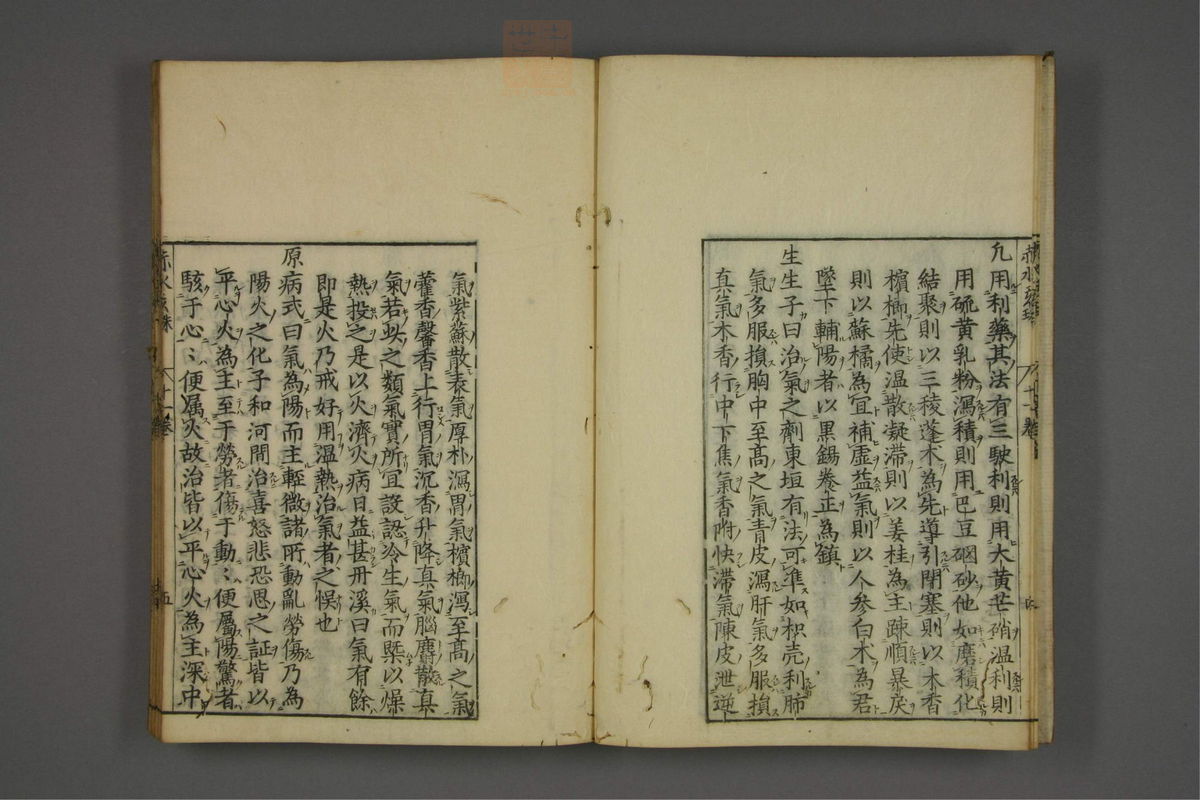 凢用利藥其法有三駛利則用大黄芒硝温利則
用硫黄乳粉瀉積則用巴豆硇砂他如磨積化
結聚則以三稜蓬木為先導引閉塞則以木香
檳榔先使温散凝滞則以姜桂為主踈順暴戾
則以蘇橘為宜補虚益氣則以人参白木為君
墜下輔陽者以黒錫養正為鎮
生生子曰治氣之劑東垣有法可準如枳壳利肺
氣多服損胸中至髙之氣青皮瀉肝氣多服損
真氣木香行中下焦氣香附快滞氣陳皮泄逆
氣紫蘇散表氣厚朴瀉胃氣檳榔瀉至髙之氣
藿香馨香上行胃氣沉香升降真氣腦麝散真
氣若此之類氣實所宜設認冷生氣而槩以燥
熱投之是以火濟火病日益甚丹溪曰氣有餘
即是火乃戒好用温熱治氣者之悞也
原病式曰氣為陽而主輕微諸所動亂勞傷乃為
陽火之化子和河間治喜怒悲恐思之証皆以
平心火為主至于勞者傷于動〻便屬陽驚者
駭于心〻便属火故治皆以平心火為主深中
赤水玄珠
十一卷
五